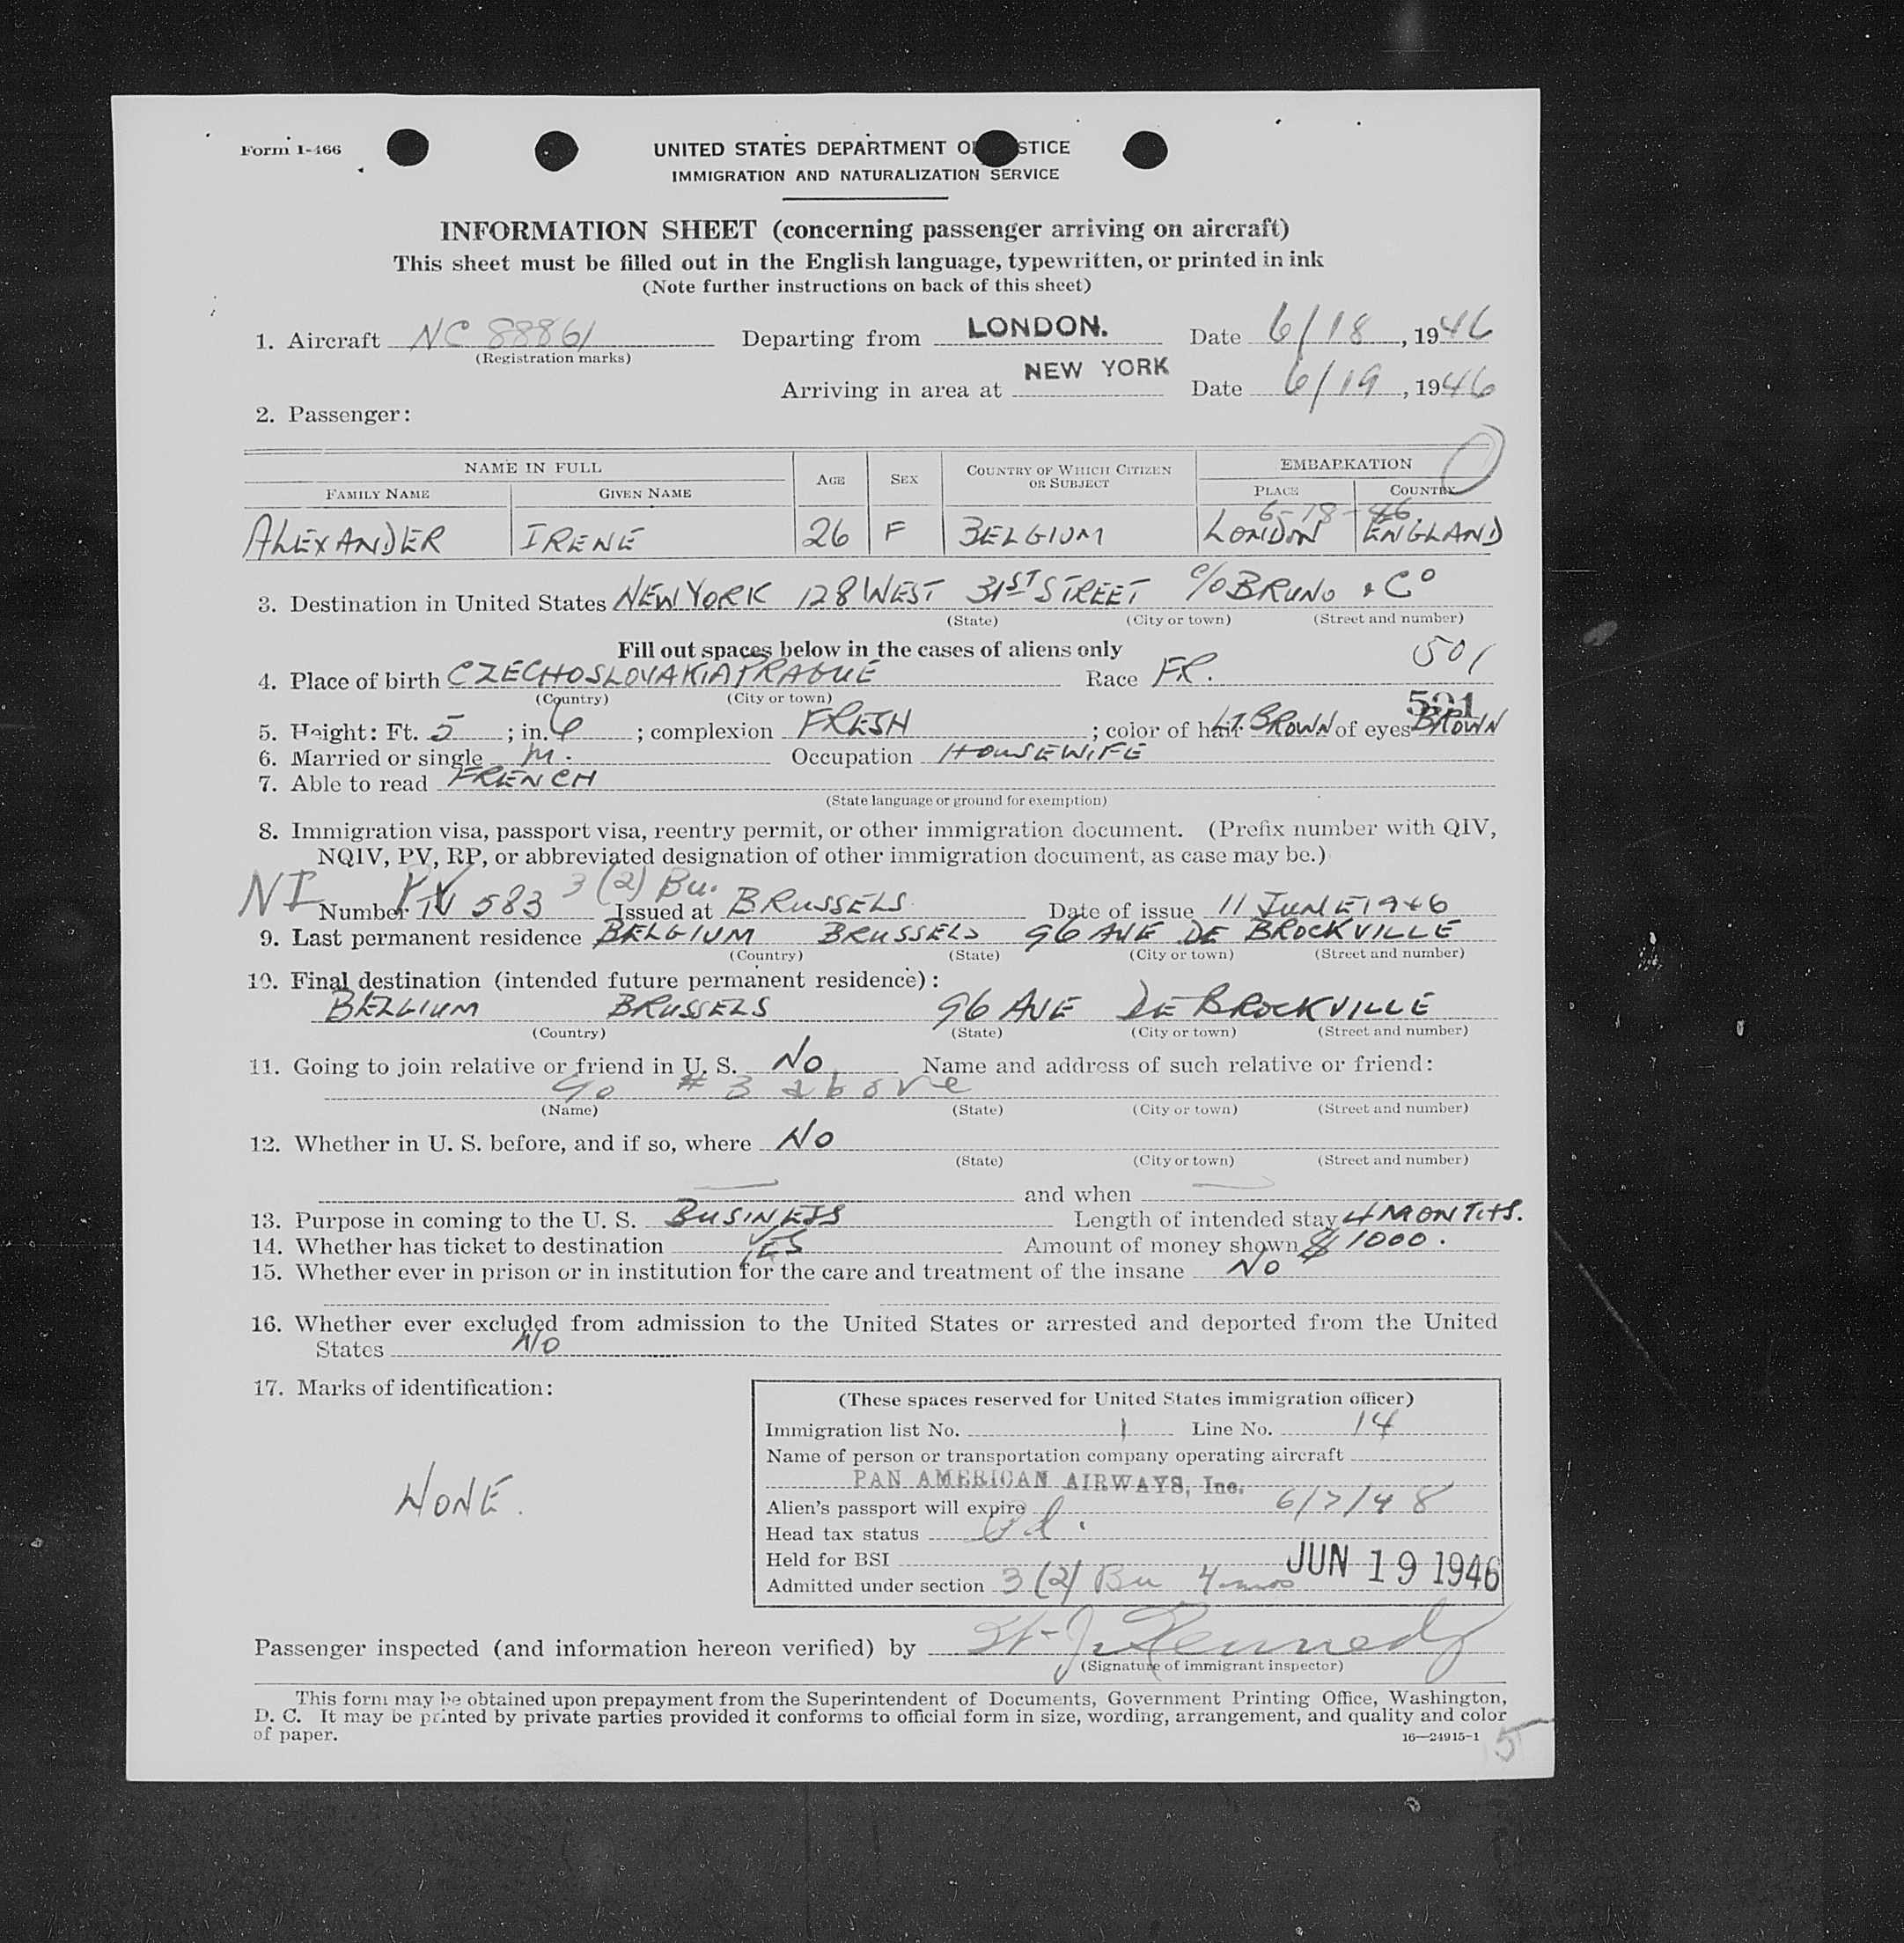 Form I-466
UNITED STATES DEPARTMENT O STICE
IMMIGRATION AND NATURALIZATION SERVICE
INFORMATION SHEET (concerning passenger arriving on aircraft)
This sheet must be filled out in the English language, typewritten, or printed in ink
(Note further instructions on back of this sheet)
1. Aircraft NC 88861 Departing from LONDON. Date 6/18, 1946
(Registration marks)
Arriving in area at NEW YORK Date 6/19, 1946
2. Passenger:
NAME IN FULL AGE SEX COUNTRY OF WHICH CITIZEN OR SUBJECT EMBARKATION
FAMILY NAME GIVEN NAME PLACE COUNTRY
6-18-46
ALEXANDER IRENE 26 F BELGIUM LONDON ENGLAND
3. Destination in United States NEW YORK 128 WEST 31ST STREET c/o BRUNO & Co
(State) (City or town) (Street and number)
Fill out spaces below in the cases of aliens only
501
4. Place of birth CZECHOSLOVAKIA PRAGUE Race FR.
(Country) (City or town)
501
5. Height: Ft. 5 ; in. 6 ; complexion FRESH ; color of hair LT BROWN of eyes BROWN
6. Married or single M. Occupation HOUSEWIFE
7. Able to read FRENCH
(State language or ground for exemption)
8. Immigration visa, passport visa, reentry permit, or other immigration document. (Prefix number with QIV,
NQIV, PV, RP, or abbreviated designation of other immigration document, as case may be.)
NI PV 3 (2) Bu.
Number 583 Issued at BRUSSELS Date of issue 11 JUNE 1946
9. Last permanent residence BELGIUM BRUSSELS 96 AVE DE BROCKVILLE
(Country) (State) (City or town) (Street and number)
10. Final destination (intended future permanent residence):
BELGIUM BRUSSELS 96 AVE DE BROCKVILLE
(Country) (State) (City or town) (Street and number)
11. Going to join relative or friend in U. S. NO Name and address of such relative or friend:
# 3 above
(Name) (State) (City or town) (Street and number)
12. Whether in U. S. before, and if so, where NO
(State) (City or town) (Street and number)
and when
13. Purpose in coming to the U. S. BUSINESS Length of intended stay 4 MONTHS.
14. Whether has ticket to destination YES Amount of money shown $ 1000.
15. Whether ever in prison or in institution for the care and treatment of the insane NO
16. Whether ever excluded from admission to the United States or arrested and deported from the United
States NO
17. Marks of identification:
NONE.
(These spaces reserved for United States immigration officer)
Immigration list No. 1 Line No. 14
Name of person or transportation company operating aircraft
PAN AMERICAN AIRWAYS, Inc.
Alien's passport will expire 6/7/48
Head tax status
Held for BSI JUN 19 1946
Admitted under section 3 (2) Bu 4 mos
Passenger inspected (and information hereon verified) by Kennedy
(Signature of immigrant inspector)
This form may be obtained upon prepayment from the Superintendent of Documents, Government Printing Office, Washington,
D. C. It may be printed by private parties provided it conforms to official form in size, wording, arrangement, and quality and color
of paper.
16—24915-1
5